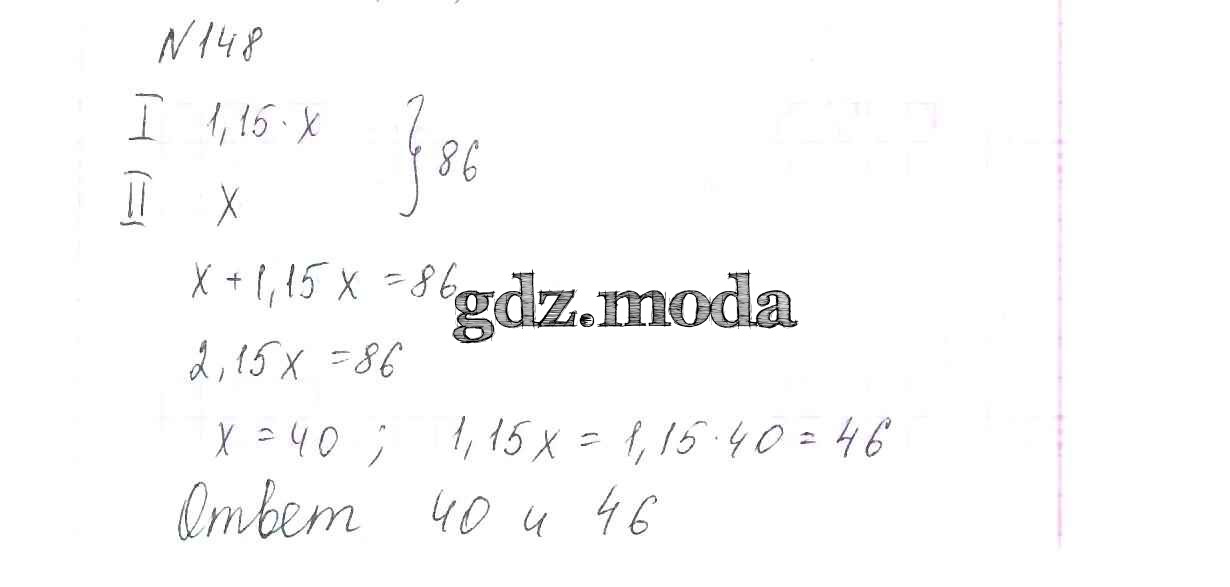 N148
I 1,15·x
} 86
II x
x + 1,15x = 86
gdz.moda
2,15x = 86
x = 40 ; 1,15x = 1,15·40 = 46
Ответ 40 и 46